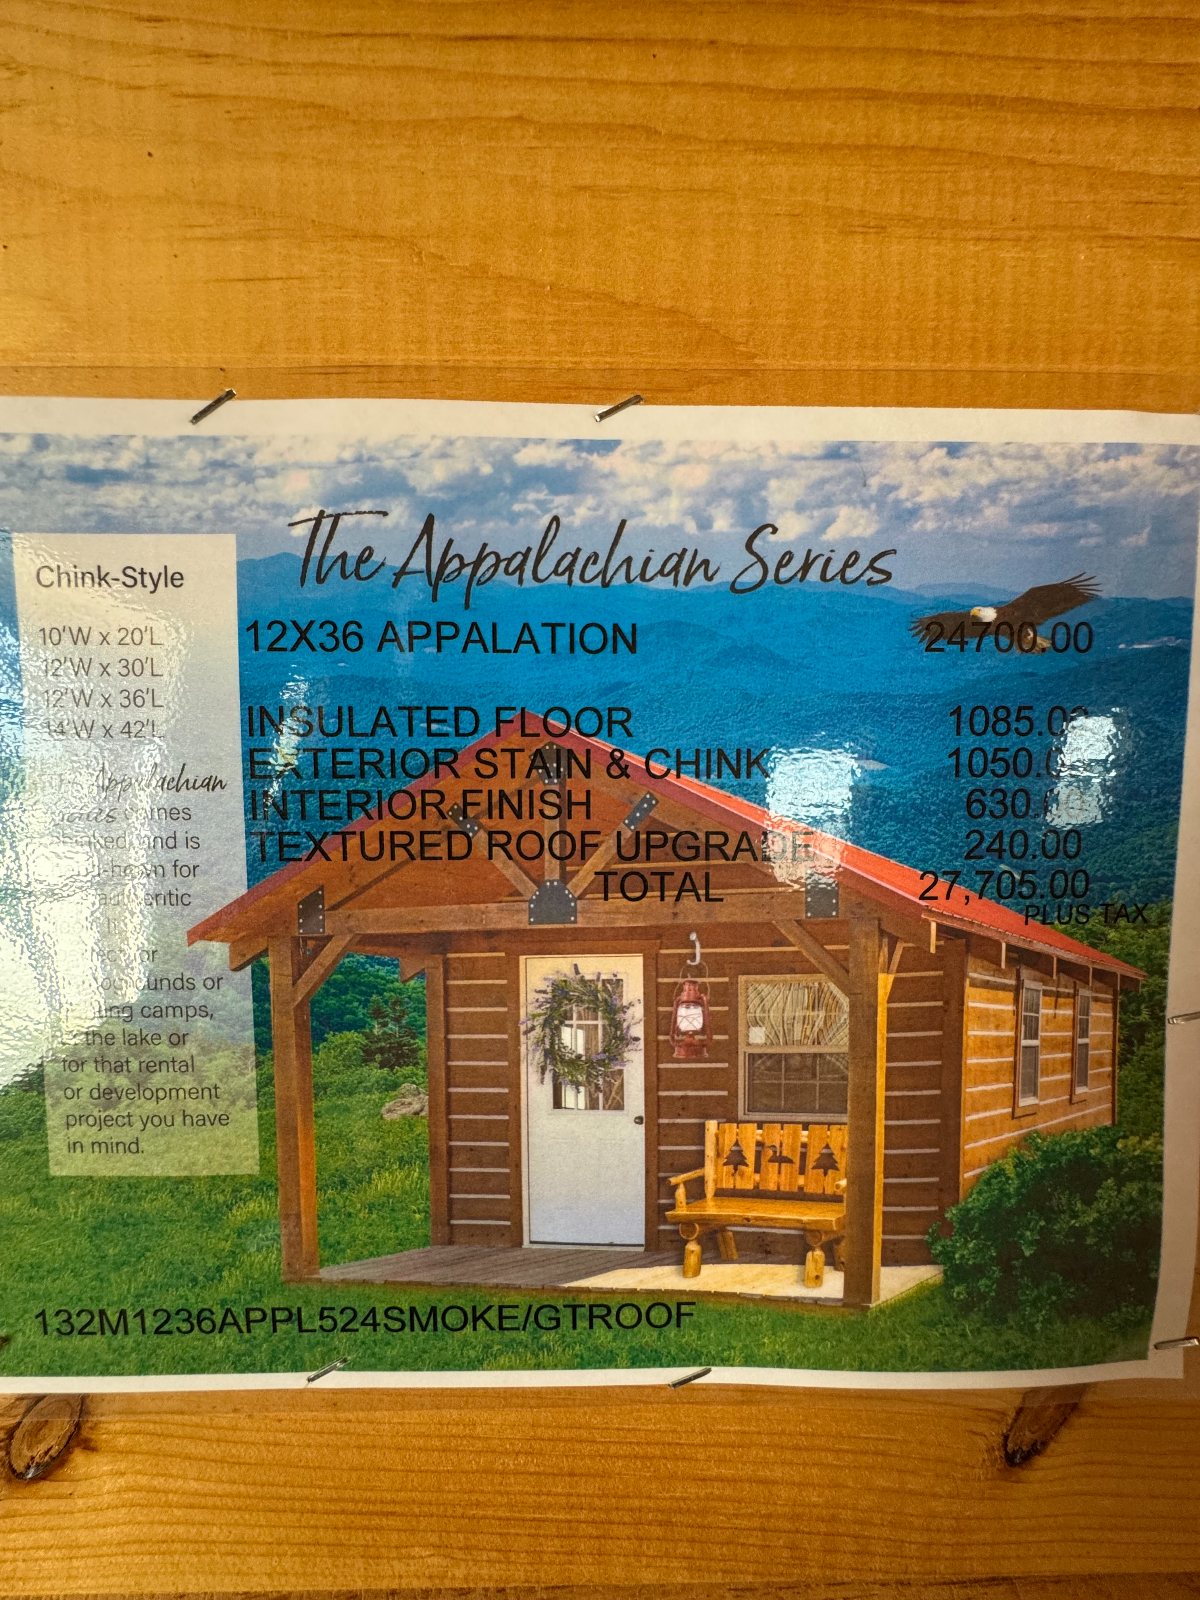 The Appalachian Series
Chink-Style
10'W x 20'L
12'W x 30'L
12'W x 36'L
14'W x 42'L
Appalachian
and is
for
or
grounds or
camps,
the lake or
for that rental
or development
project you have
in mind.
12X36 APPALATION 24700.00
INSULATED FLOOR 1085.00
EXTERIOR STAIN & CHINK 1050.00
INTERIOR FINISH 630.00
TEXTURED ROOF UPGRADE 240.00
TOTAL 27,705.00
PLUS TAX
132M1236APPL524SMOKE/GTROOF